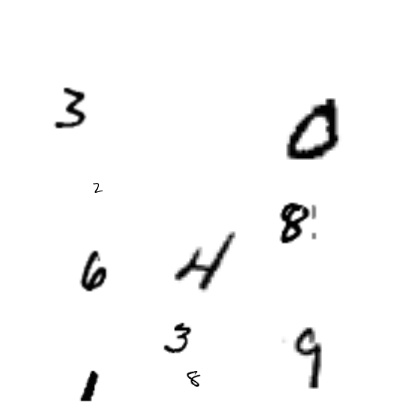 3
0
2
8
6 4
3 9
1 8